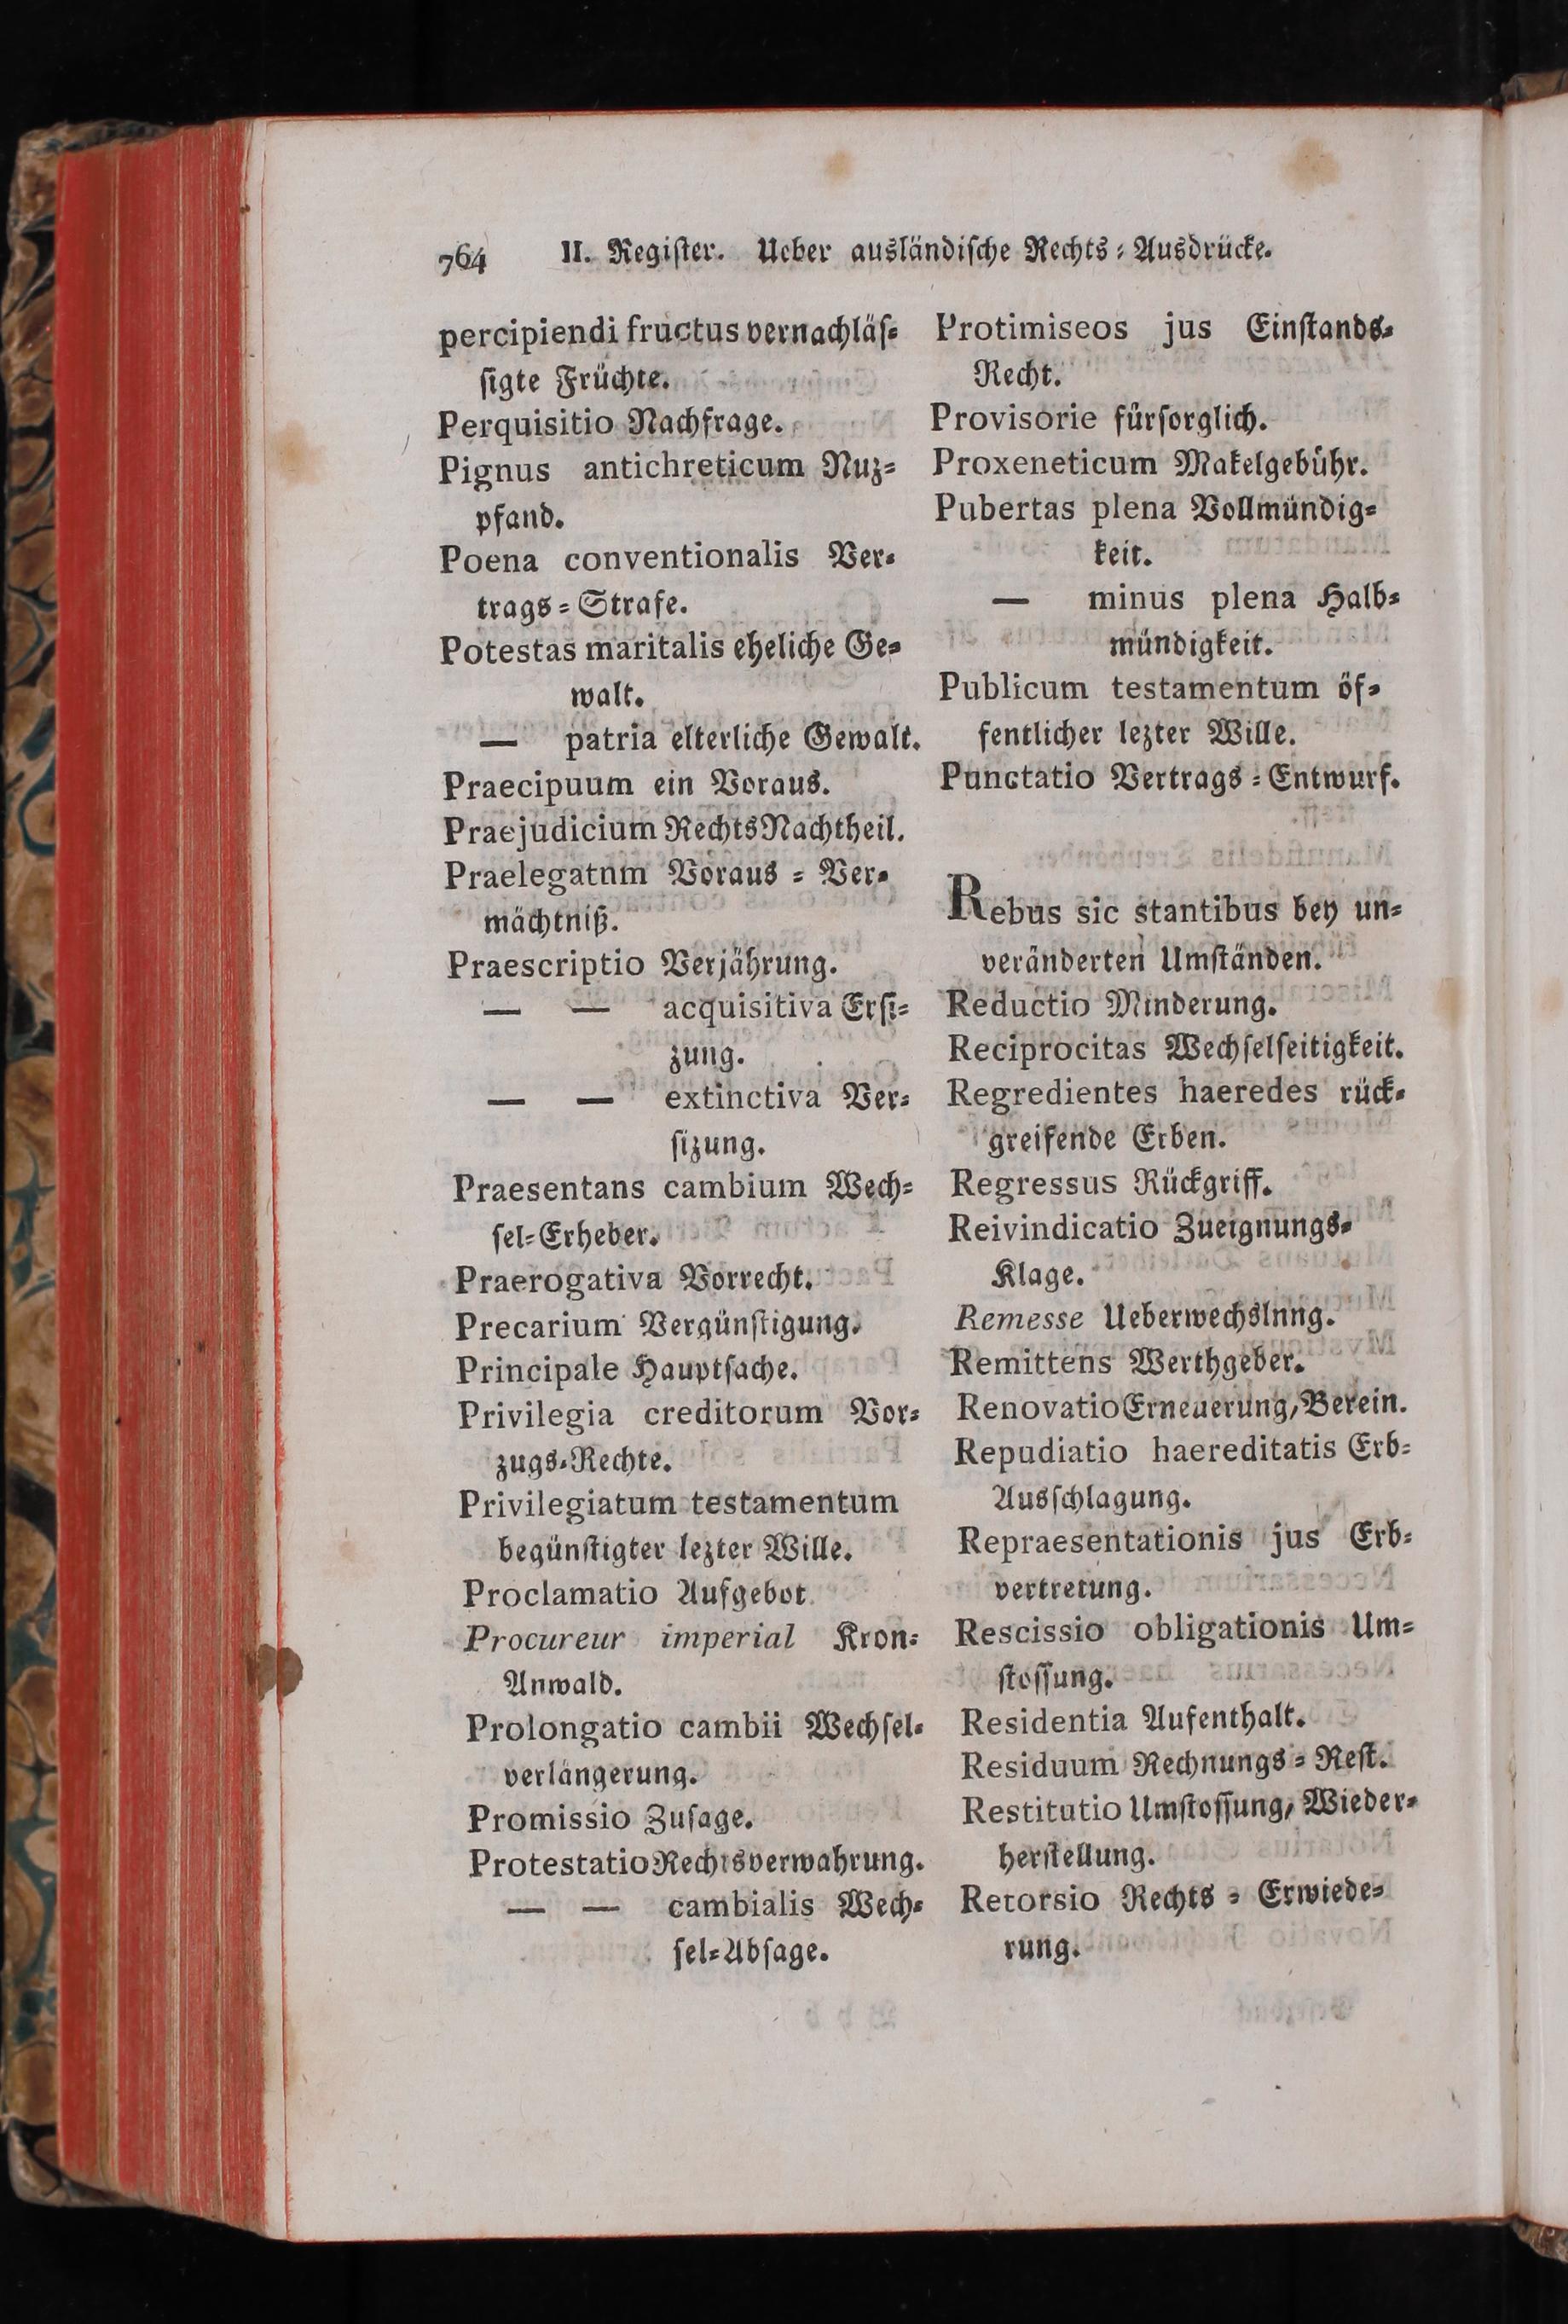 764 II. Regiſter. Ueber ausländiſche Rechts⸗Ausdrücke.
percipiendi fructus vernachläſ⸗
ſigte Früchte.
Perquisitio Nachfrage.
Pignus antichreticum Nuz⸗
pfand.
Poena conventionalis Ver⸗
trags⸗Strafe.
Potestas maritalis eheliche Ge⸗
walt.
— patria elterliche Gewalt.
Praecipuum ein Voraus.
Praejudicium RechtsNachtheil.
Praelegatnm Voraus⸗Ver⸗
mächtniß.
Praescriptio Verjährung.
— — acquisitiva Erſi⸗
zung.
— — extinctiva Ver⸗
ſizung.
Praesentans cambium Wech⸗
ſel⸗Erheber.
Praerogativa Vorrecht.
Precarium Vergünſtigung.
Principale Hauptſache.
Privilegia creditorum Vor⸗
zugs⸗Rechte.
Privilegiatum testamentum
begünſtigter lezter Wille.
Proclamatio Aufgebot
Procureur imperial Kron⸗
Anwald.
Prolongatio cambii Wechſel⸗
verlängerung.
Promissio Zuſage.
Protestatio Rechtsverwahrung.
— — cambialis Wech⸗
ſel⸗Abſage.
Protimiseos jus Einſtands⸗
Recht.
Provisorie fürſorglich.
Proxeneticum Makelgebühr.
Pubertas plena Vollmündig⸗
keit.
— minus plena Halb⸗
mündigkeit.
Publicum testamentum öf⸗
fentlicher lezter Wille.
Punctatio Vertrags⸗Entwurf.
Rebus sic stantibus bey un⸗
veränderten Umſtänden.
Reductio Minderung.
Reciprocitas Wechſelſeitigkeit.
Regredientes haeredes rück⸗
greifende Erben.
Regressus Rückgriff.
Reivindicatio Zueignungs⸗
Klage.
Remesse Ueberwechslnng.
Remittens Werthgeber.
Renovatio Erneuerung, Berein.
Repudiatio haereditatis Erb⸗
Ausſchlagung.
Repraesentationis jus Erb⸗
vertretung.
Rescissio obligationis Um⸗
ſtoſſung.
Residentia Aufenthalt.
Residuum Rechnungs⸗Reſt.
Restitutio Umſtoſſung, Wieder⸗
herſtellung.
Retorsio Rechts⸗Erwiede⸗
rung.